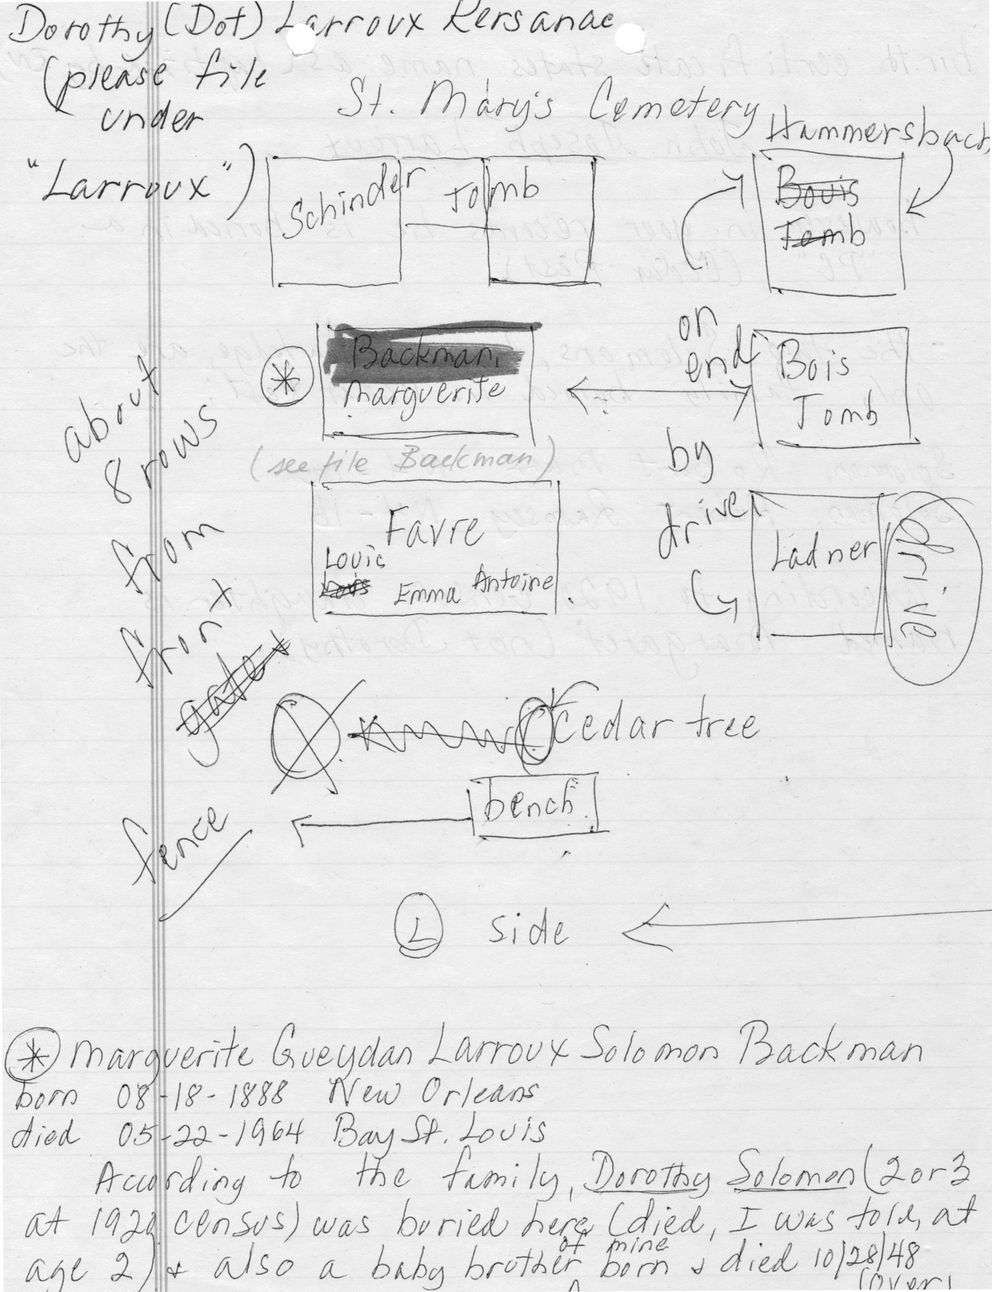 Dorothy (Dot) Larroux Kersanac
(please file
under
"Larroux")
St. Mary's Cemetery
Hammersback
Schinder Tomb
Bouis
Tomb
on
end
by
drive
Backman,
Marguerite
Bois
Tomb
(see file Backman)
about
8 rows
from
front
gate
fence
Favre
Louic
Emma Antoine
Ladner
drive
Cedar tree
bench
L side
* Marguerite Gueydan Larroux Solomon Backman
born 08-18-1888 New Orleans
died 05-22-1964 Bay St. Louis
According to the family, Dorothy Solomon (2 or 3
at 1920 census) was buried here (died, I was told, at
age 2) & also a baby brother of mine born & died 10/28/48
(over)